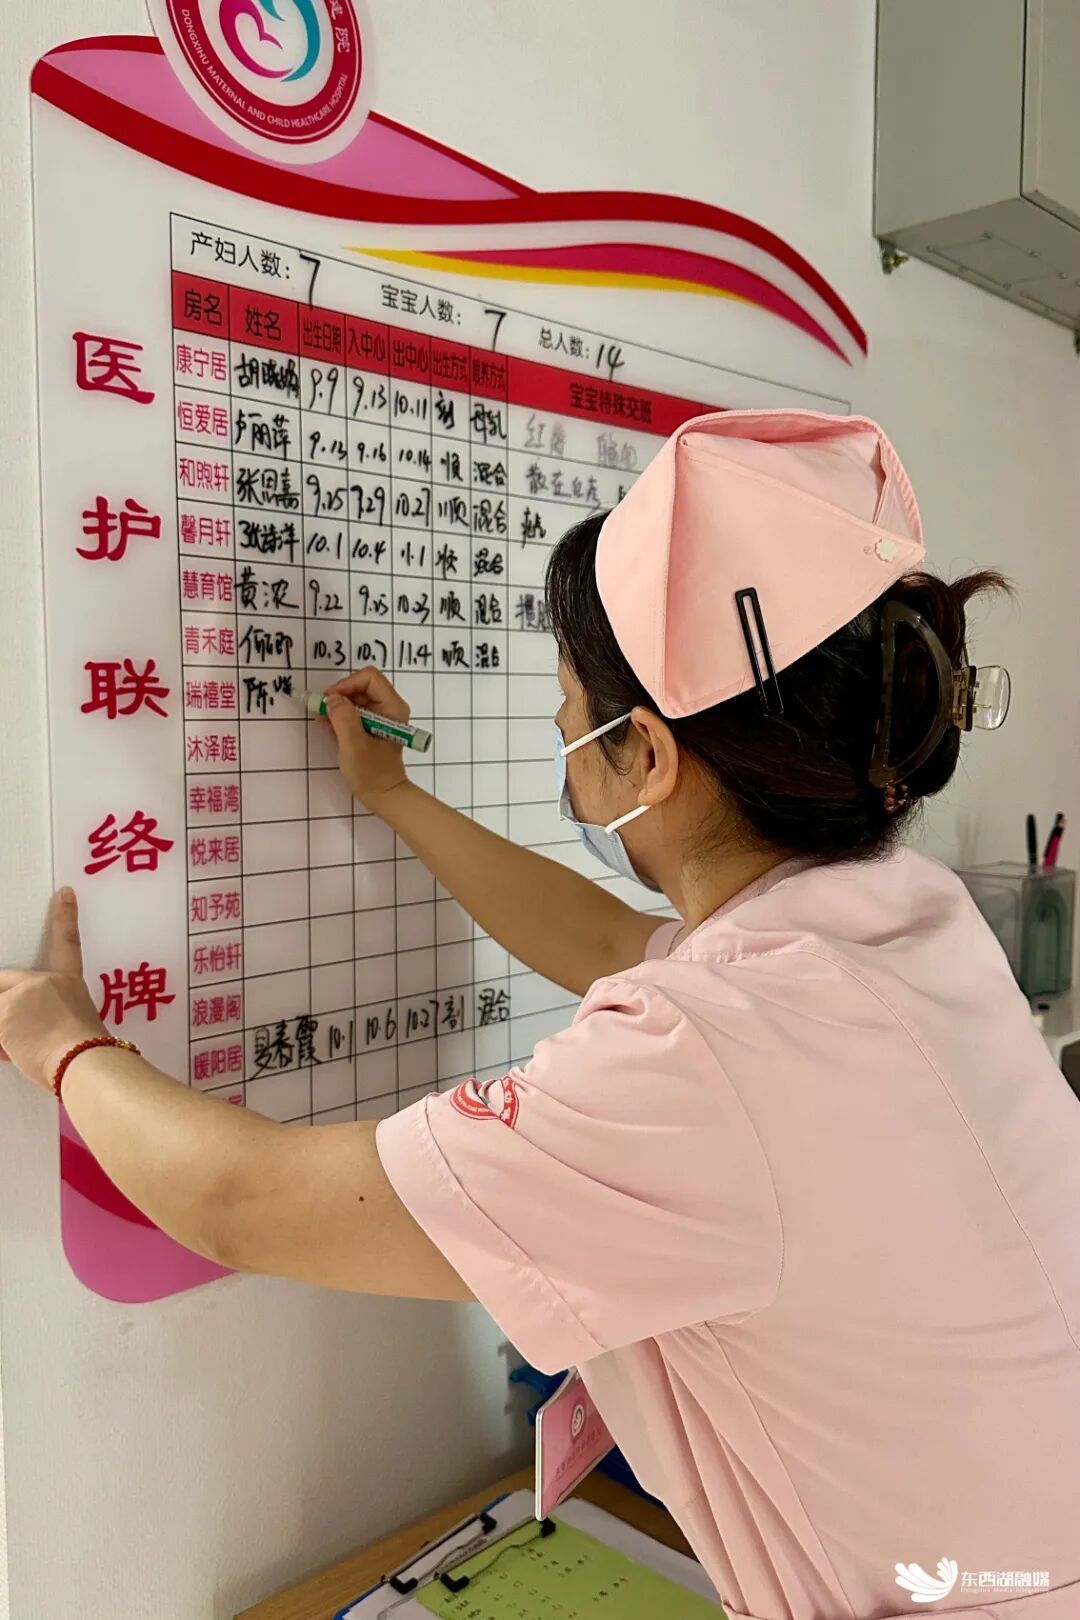 建院
DONGXIHU MATERNAL AND CHILD HEALTHCARE HOSPITAL
医护联络牌
产妇人数: 7 宝宝人数: 7 总人数: 14
房名 姓名 出生日期 入中心 出中心 出生方式 喂养方式 宝宝特殊交班
康宁居 9.9 9.13 10.11 剖 母乳
恒爱居 卢丽萍 9.13 9.16 10.14 顺 混合
和煦轩 张恩嘉 9.25 9.29 10.27 顺 混合
馨月轩 张诗洋 10.1 10.4 11.1 顺 混合
慧育馆 黄浓 9.22 9.25 10.23 顺 混合
青禾庭 10.3 10.7 11.4 顺 混合
瑞禧堂 陈
沐泽庭
幸福湾
悦来居
知予苑
乐怡轩
浪漫阁
暖阳居 夏春霞 10.1 10.6 10.27 剖 混合
东西湖融媒
Dongxihu Media Integration